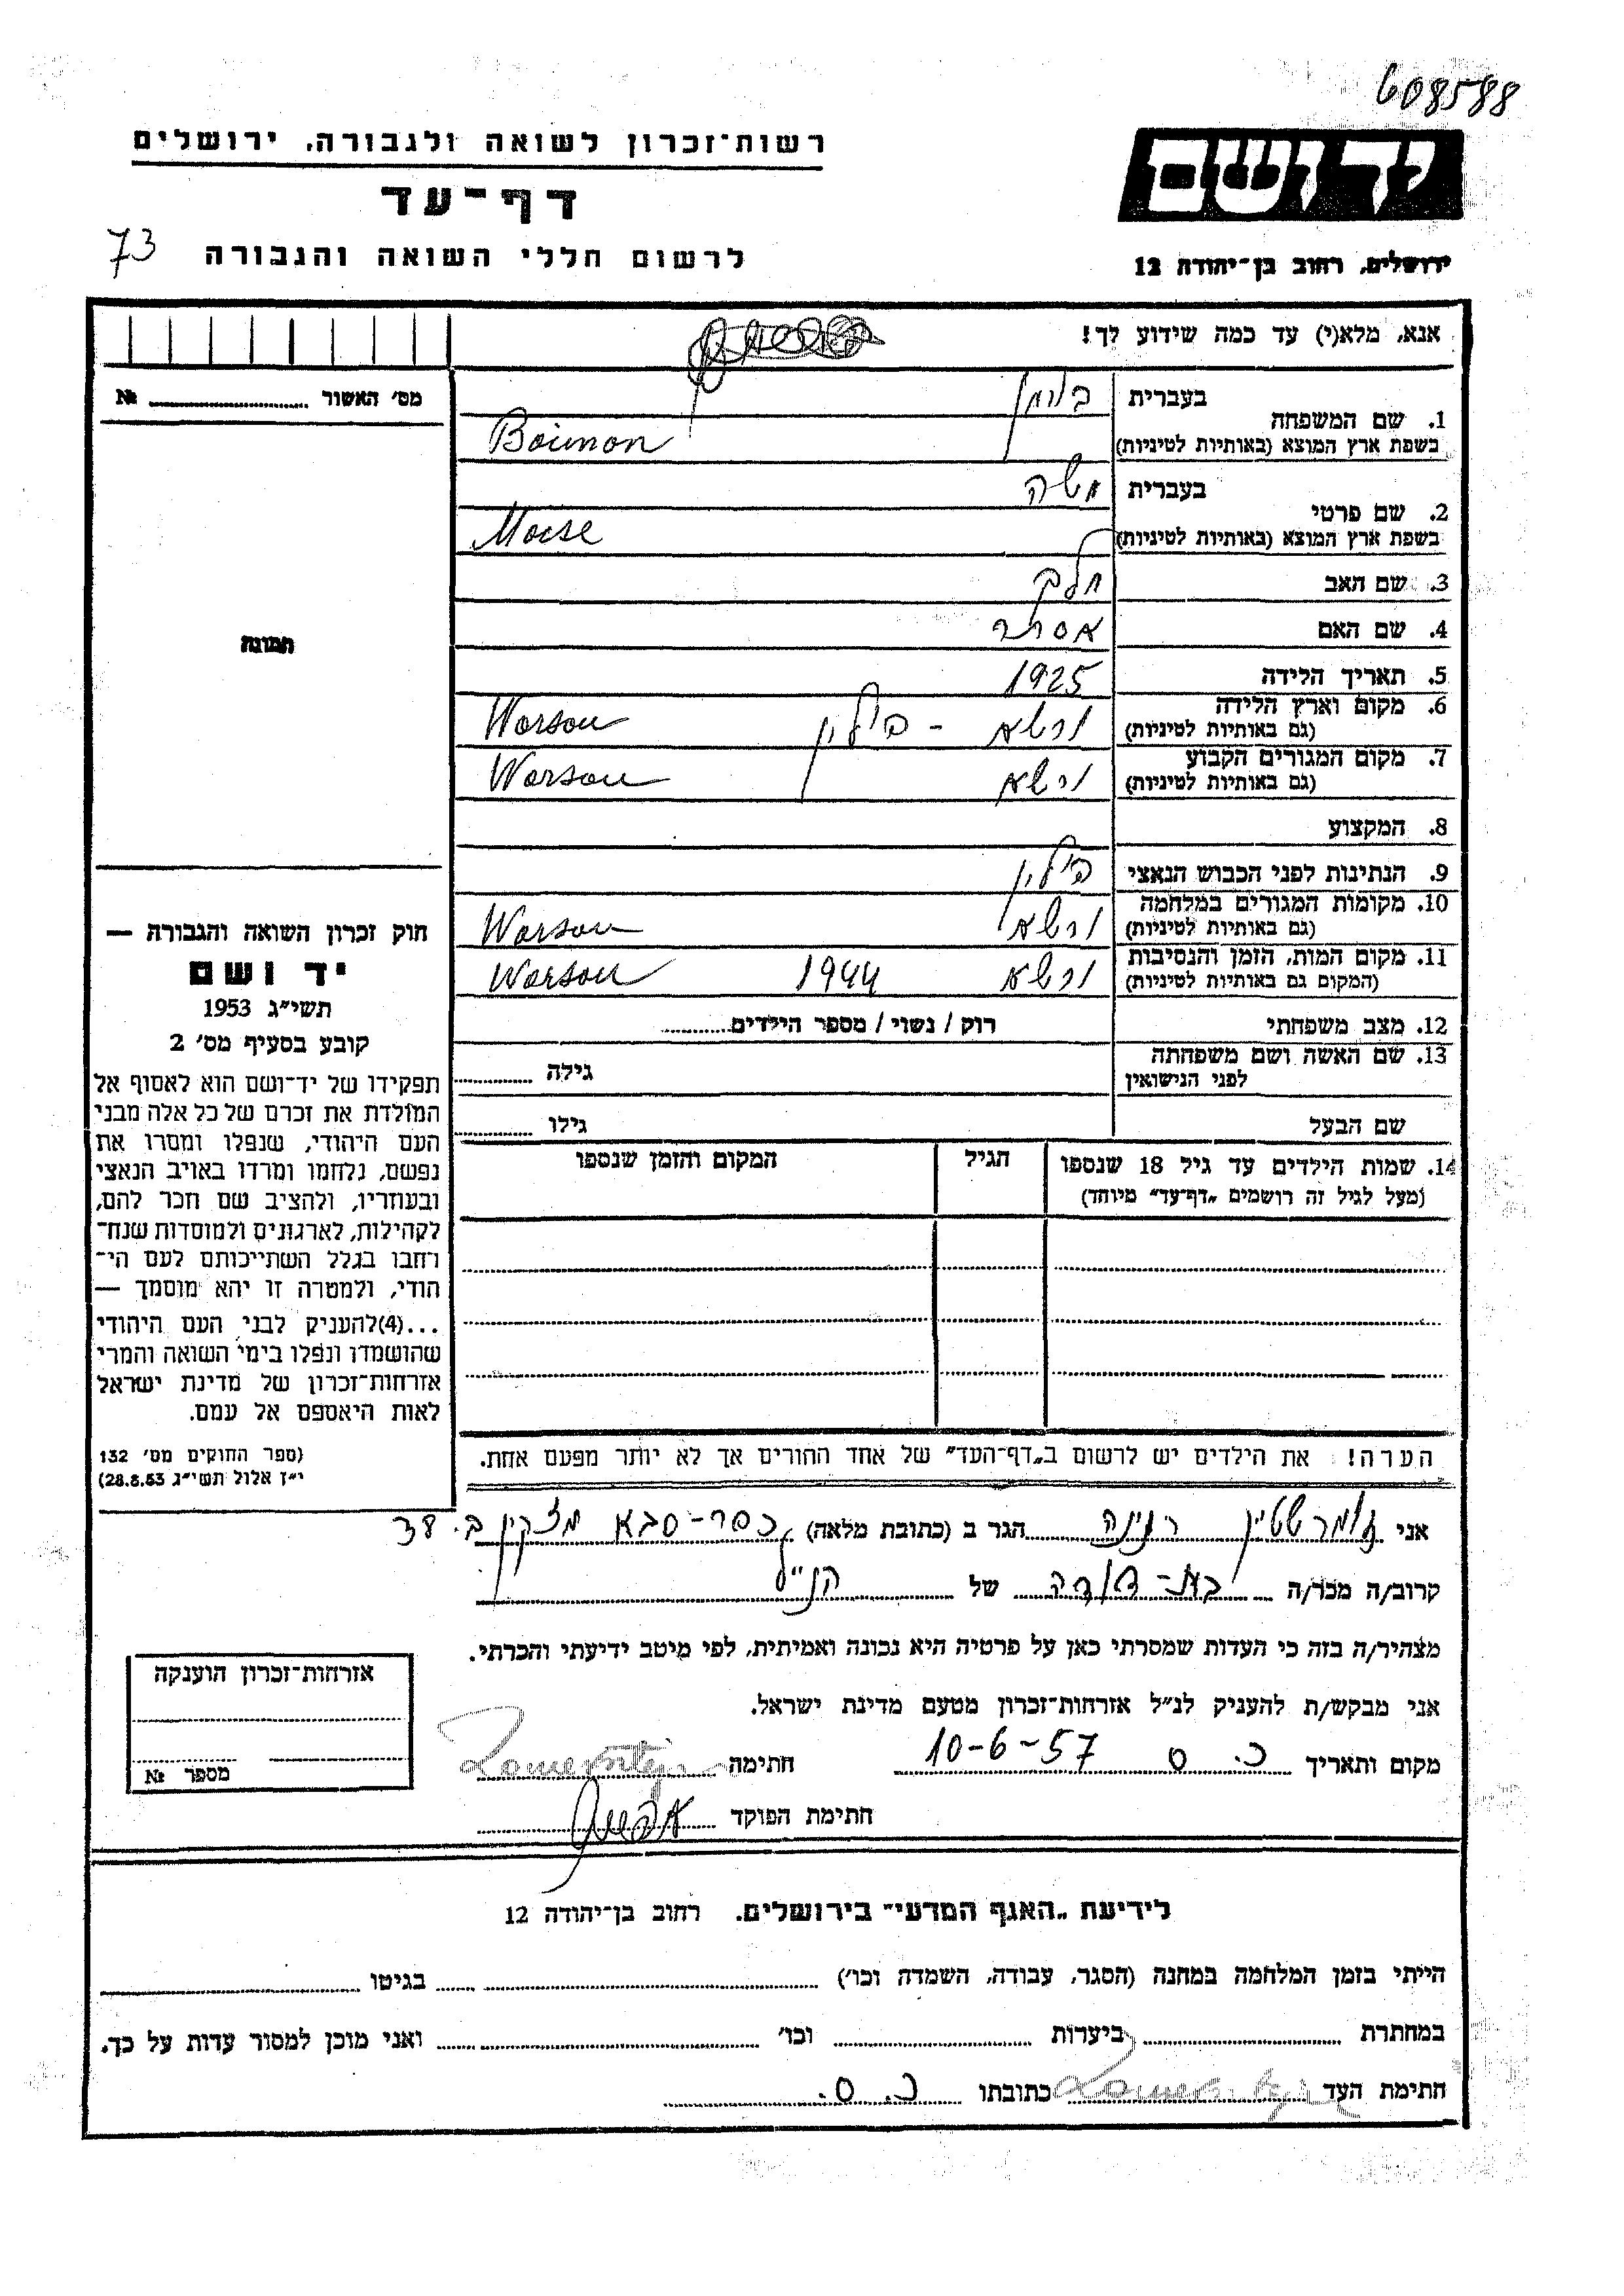 608588
רשות־זכרון לשואה ולגבורה, ירושלים
יד ושם
דף־עד
ירושלים, רחוב בן־יהודה 12
לרשום חללי השואה והגבורה
73
אנא, מלא(י) עד כמה שידוע לך!
מס׳ האשור № 
1. שם המשפחה
בעברית
בוימן
בשפת ארץ המוצא (באותיות לטיניות)
Boimon
2. שם פרטי
בעברית
משה
בשפת ארץ המוצא (באותיות לטיניות)
Moise
3. שם האב
4. שם האם אסתר
5. תאריך הלידה 1925
6. מקום וארץ הלידה
(גם באותיות לטיניות)
ורשא - פולין Worsou
7. מקום המגורים הקבוע
(גם באותיות לטיניות)
ורשא Worsou
8. המקצוע
9. הנתינות לפני הכבוש הנאצי פולין
10. מקומות המגורים במלחמה
(גם באותיות לטיניות)
ורשא Worsou
11. מקום המות, הזמן והנסיבות
(המקום גם באותיות לטיניות)
ורשא 1944 Worsou
12. מצב משפחתי רוק / נשוי / מספר הילדים
13. שם האשה ושם משפחתה
לפני הנישואין
גילה
שם הבעל גילו
14. שמות הילדים עד גיל 18 שנספו
(מעל לגיל זה רושמים „דף־עד״ מיוחד)
הגיל
המקום והזמן שנספו
תמונה
חוק זכרון השואה והגבורה —
יד ושם
תשי״ג 1953
קובע בסעיף מס׳ 2
תפקידו של יד־ושם הוא לאסוף אל
המולדת את זכרם של כל אלה מבני
העם היהודי, שנפלו ומסרו את
נפשם, נלחמו ומרדו באויב הנאצי
ובעוזריו, ולהציב שם וזכר להם,
לקהילות, לארגונים ולמוסדות שנח־
רבו בגלל השתייכותם לעם הי־
הודי, ולמטרה זו יהא מוסמך —
...(4)להעניק לבני העם היהודי
שהושמדו ונפלו בימי השואה והמרי
אזרחות־זכרון של מדינת ישראל
לאות היאספם אל עמם.
(ספר החוקים מס׳ 132
י״ז אלול תשי״ג 28.8.53)
הערה! את הילדים יש לרשום ב„דף־העד״ של אחד ההורים אך לא יותר מפעם אחת.
אני זומרשטיין רגינה הגר ב (כתובת מלאה) כפר-סבא
קרוב/ה מכר/ה בת-דודה של הנ״ל
מצהיר/ה בזה כי העדות שמסרתי כאן על פרטיה היא נכונה ואמיתית, לפי מיטב ידיעתי והכרתי.
אני מבקש/ת להעניק לנ״ל אזרחות־זכרון מטעם מדינת ישראל.
מקום ותאריך כ. ס 10-6-57 חתימה
חתימת הפוקד
אזרחות־זכרון הוענקה
מספר №
לידיעת „האגף המדעי״ בירושלים, רחוב בן־יהודה 12
הייתי בזמן המלחמה במחנה (הסגר, עבודה, השמדה וכו׳) בגיטו
במחתרת ביערות וכו׳ ואני מוכן למסור עדות על כך.
חתימת העד כתובתו כ. ס.